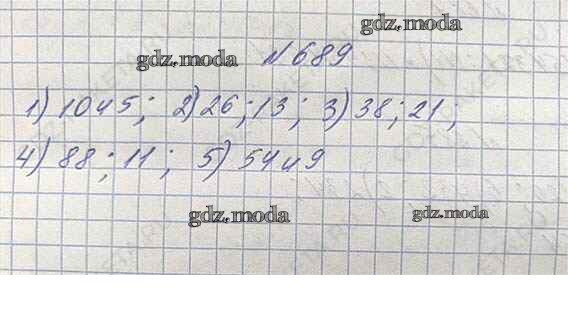 gdz.moda
gdz.moda
№689
1) 10 и 5; 2) 26; 13; 3) 38; 21;
4) 88; 11; 5) 54 и 9
gdz.moda
gdz.moda